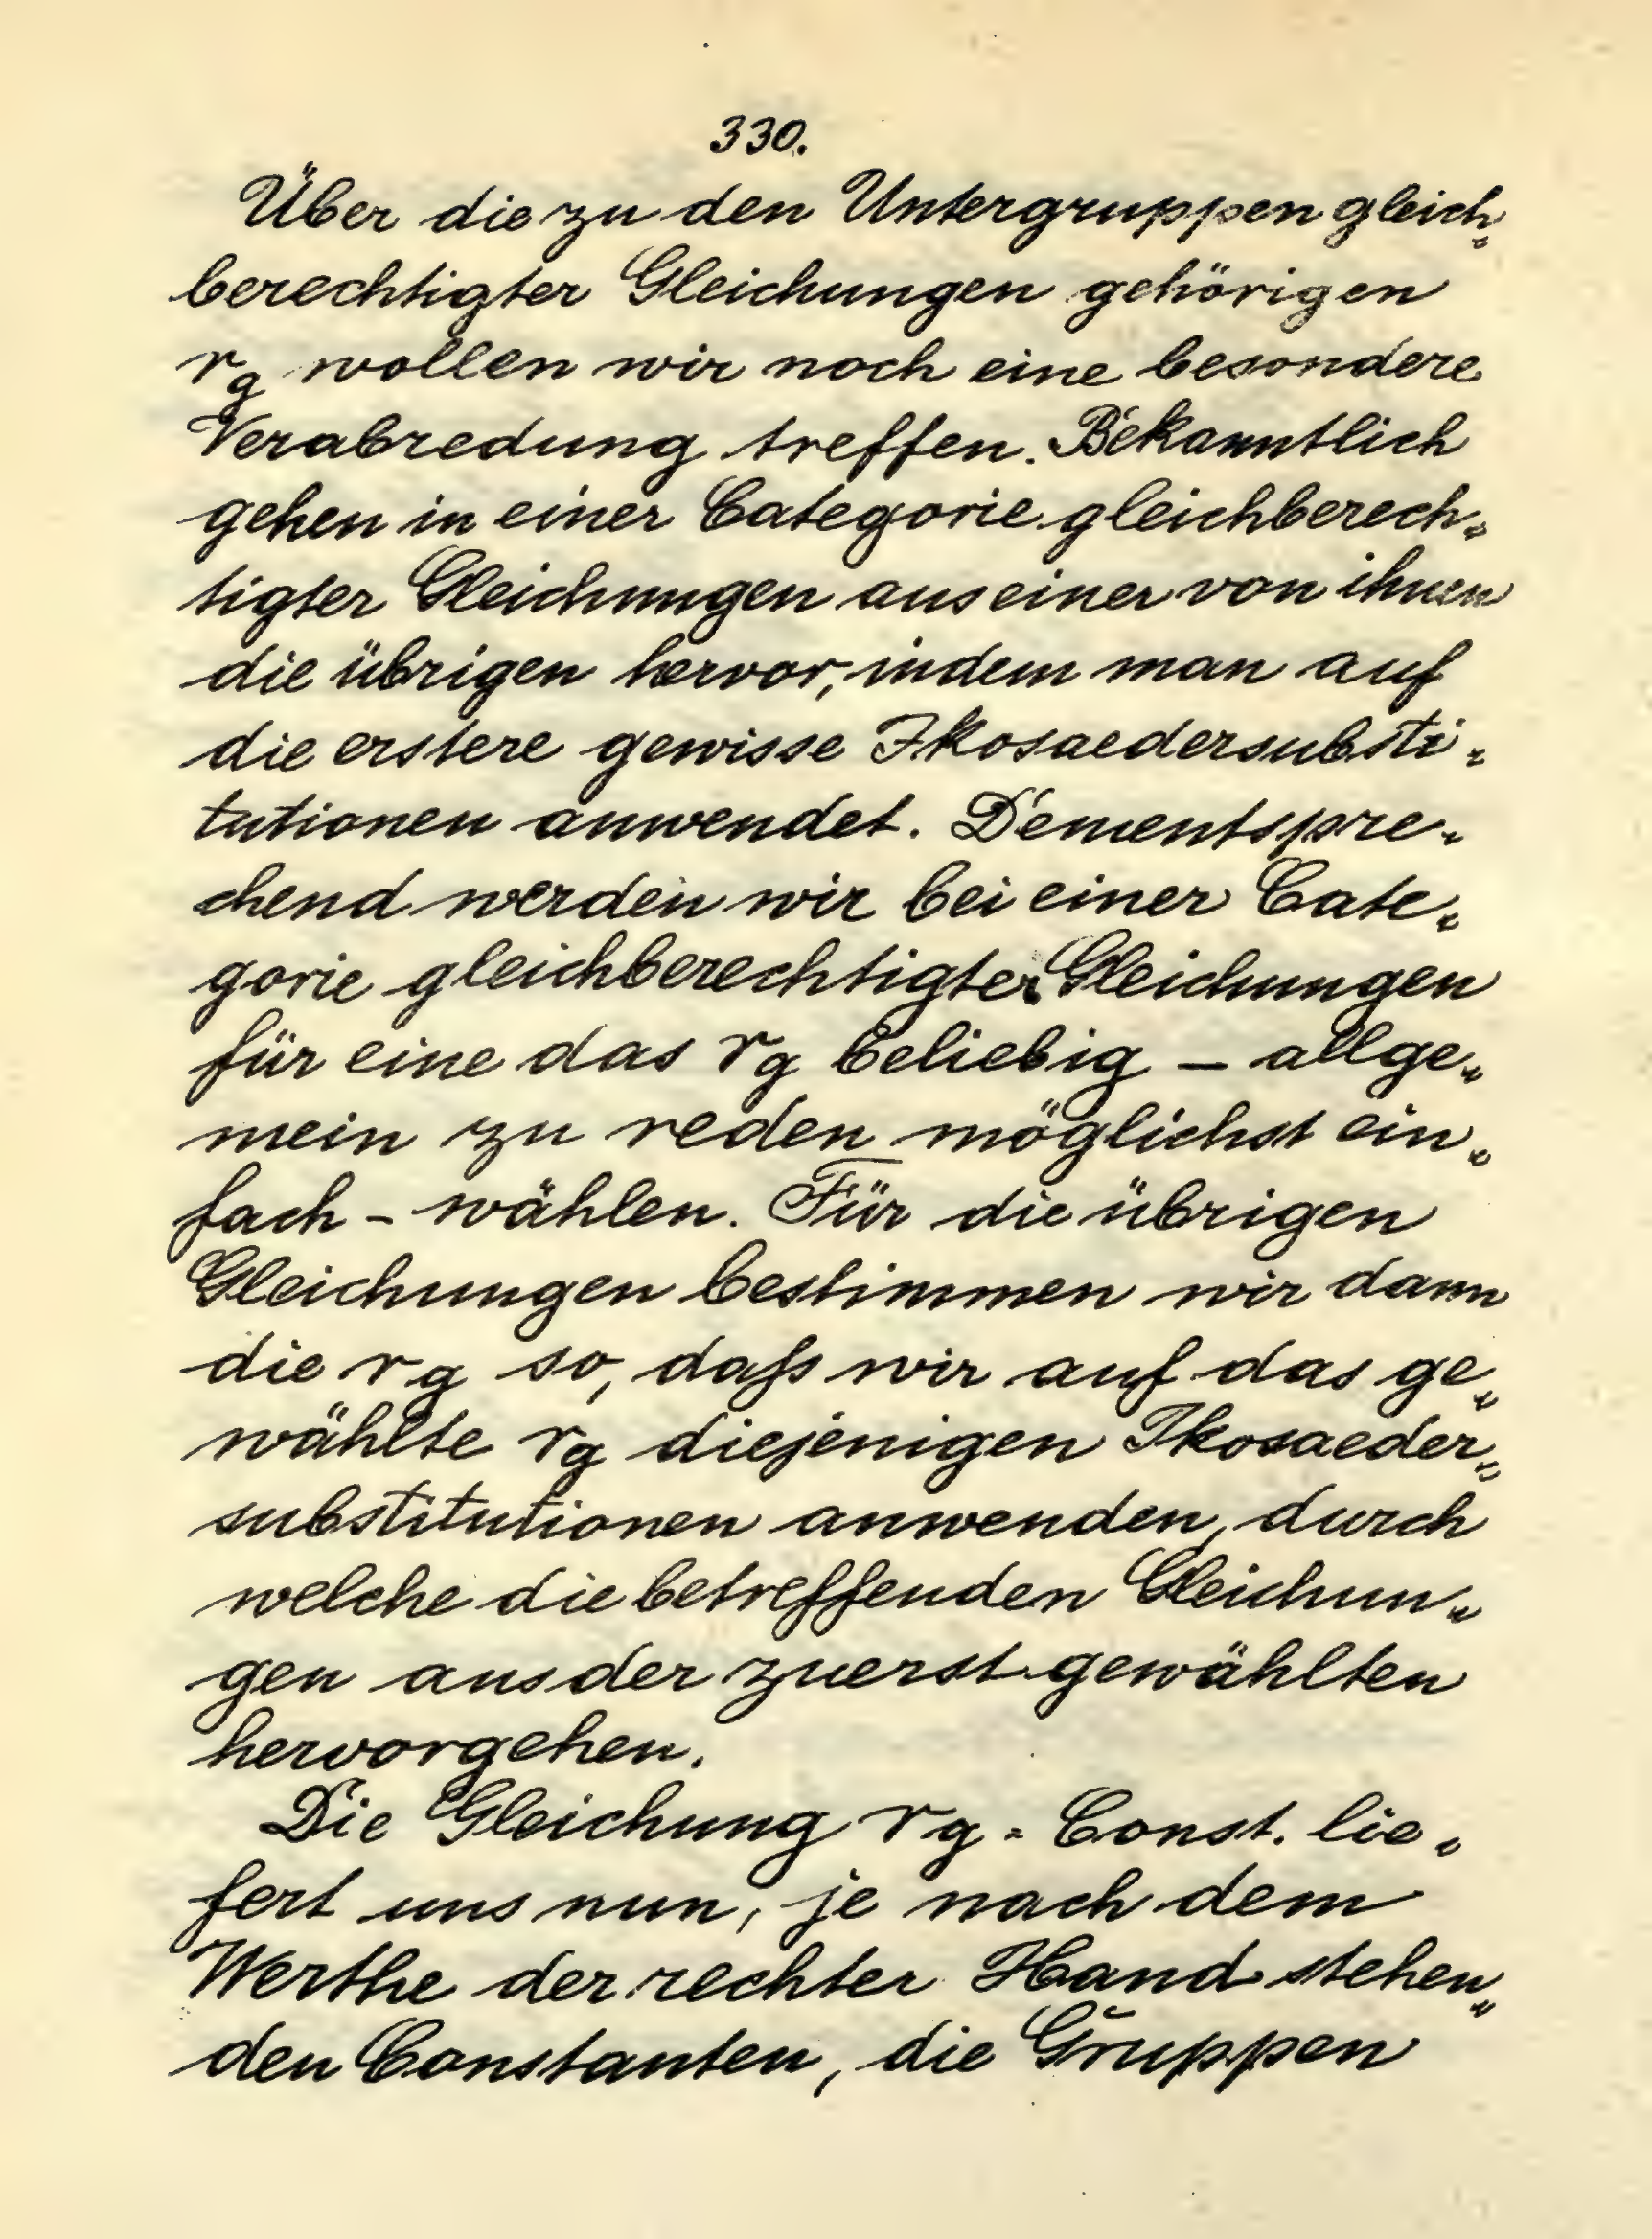 330.
Über die zu den Untergruppen gleich„
berechtigter Gleichungen gehörigen
r_g wollen wir noch eine besondere
Verabredung treffen. Bekanntlich
gehen in einer Categorie gleichberech„
tigter Gleichungen aus einer von ihnen
die übrigen hervor, indem man auf
die erstere gewisse Ikosaedersubsti„
tutionen anwendet. Dementspre„
chend werden wir bei einer Cate„
gorie gleichberechtigter Gleichungen
für eine das r_g beliebig – allge„
mein zu reden möglichst ein„
fach – wählen. Für die übrigen
Gleichungen bestimmen wir dann
die r_g so, daſs wir auf das ge„
wählte r_g diejenigen Ikosaeder„
substitutionen anwenden, durch
welche die betreffenden Gleichun„
gen aus der zuerst gewählten
hervorgehen.
Die Gleichung r_g = Const. lie„
fert uns nun, je nach dem
Werthe der rechter Hand stehen„
den Constanten, die Gruppen